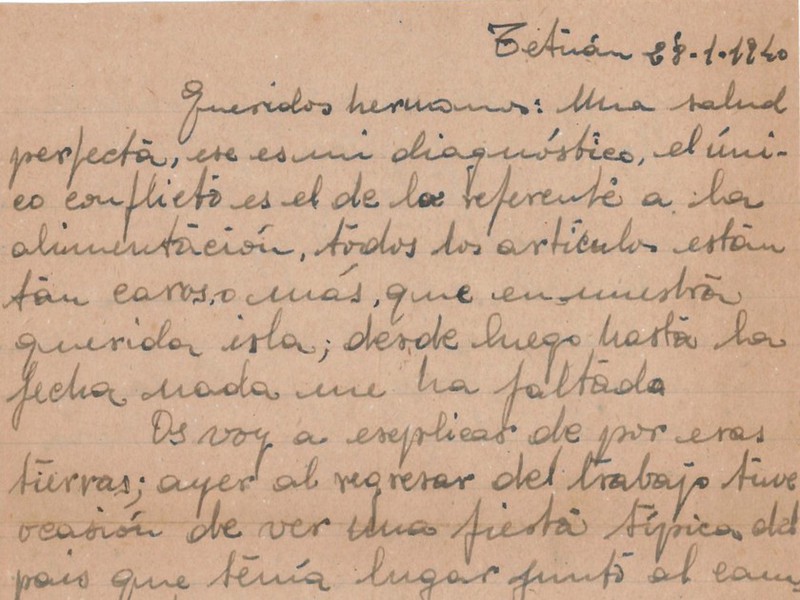 Tetuán 28-1-1940
Queridos hermanos: Una salud
perfecta, ese es mi diagnóstico, el úni-
co conflicto es el de la referente a la
alimentación, todos los artículos están
tan caros, o más, que en nuestra
querida isla; desde luego hasta la
fecha nada me ha faltado
Os voy a eseplicar de por esas
tierras; ayer al regresar del trabajo tuve
ocasión de ver una fiesta típica del
pais que tenía lugar junto al cam-